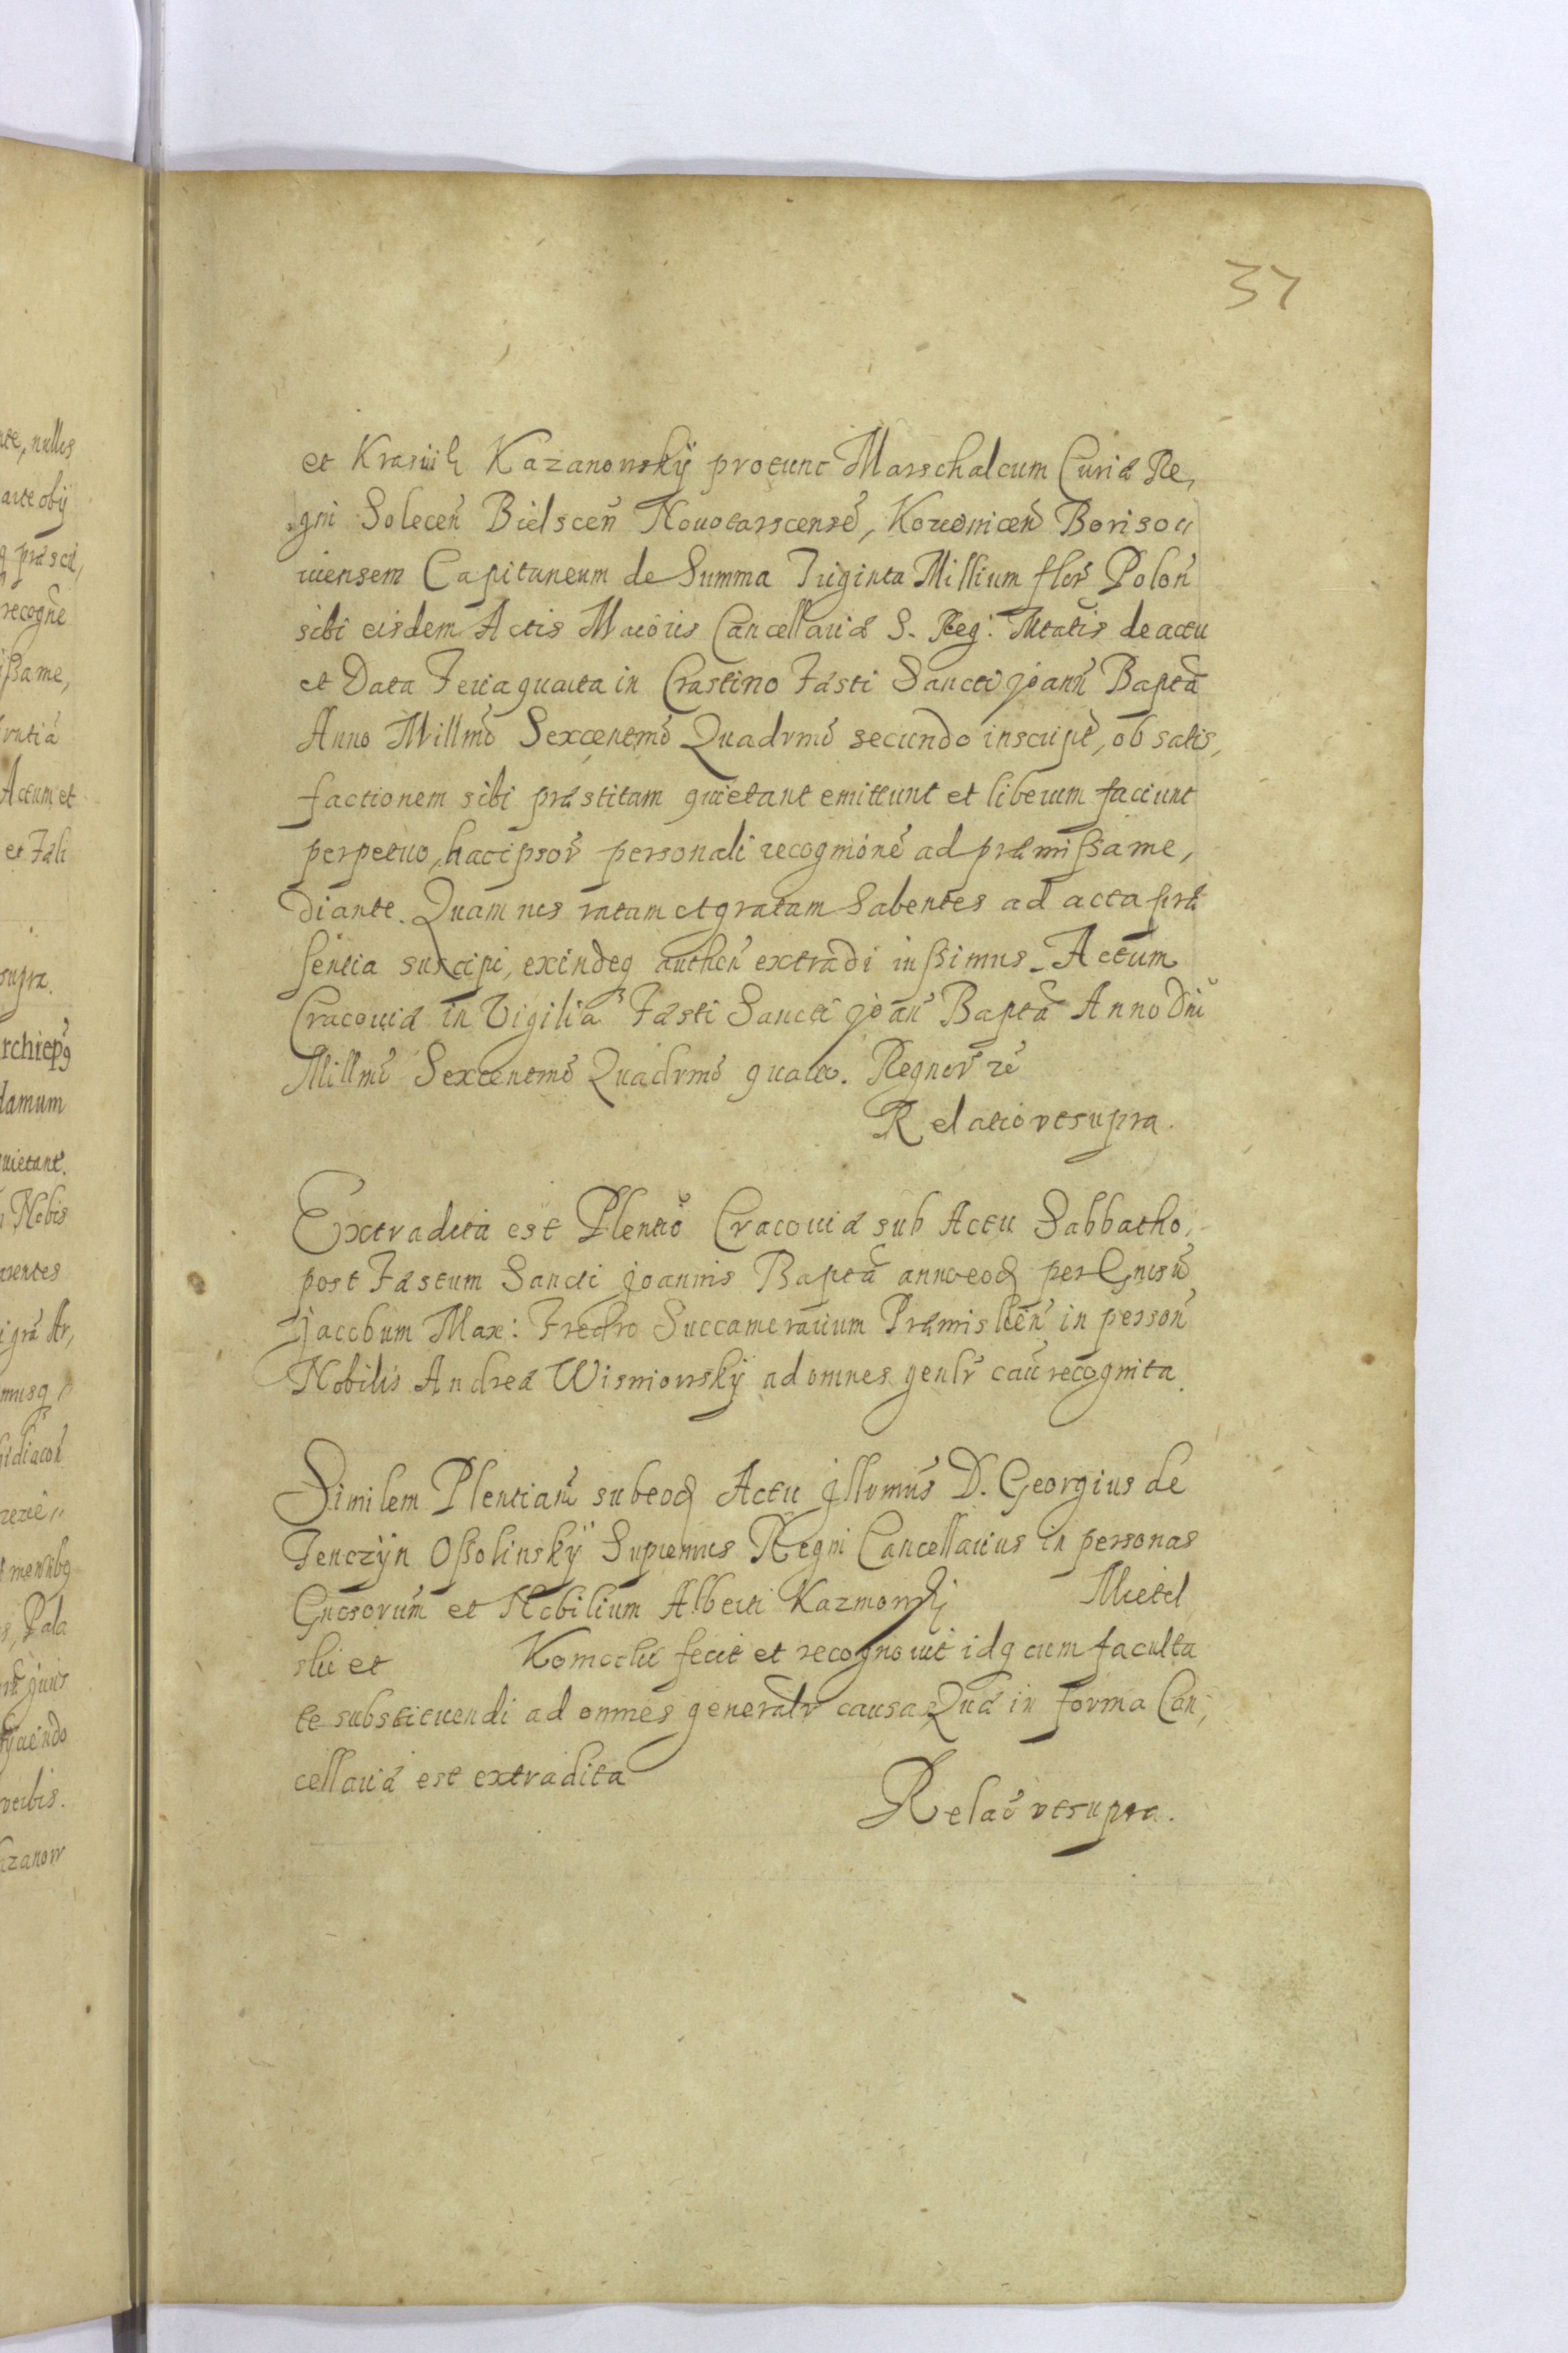 37
et Kazanowskÿ protunc Marschalcum Curiæ Re,
gni Solecen̄ Bielscen̄ Nouotarscensē, Borisou
uiensem Capitaneum de Summa Triginta Millium flor̄ Polon̄
sibi eisdem Actis Maioris Cancellariæ S. Reg: Mtatis de actu
et Data Feria quarta in Crastino Fæsti Sancti Joann̄ Baptā
Anno Millmō Sexcentmō Quadrmō secundo inscript̄, ob satis,
factionem sibi præstitam quietant emittunt et liberum faciunt
perpetuo, hac ipsor̄ personali recognionē ad præmissa me,
diante. Quam nos ratam et gratam habentes ad acta præ
sentia suscipi, exindeq authen̄ extradi iussimus. Actum
Cracouiæ in Vigilia Fæsti Sancti Joan̄ Baptā Anno Dn̄i
Millmō Sexcentmō Quadrmō quarto. Regnor̄ rē
Relatio vt supra.
Extradita est Plentiō Cracouiæ sub Actu Sabbatho,
post Fæstum Sancti Joannis Baptā anno eod per Gnosū
Jacobum Max: Fredro Succamerarium Præmislien̄ in person̄
Nobilis Andreæ Wisniowskÿ ad omnes genlr̄ cau̅ recognita.
Similem Plentiam̄ sub eod Actu Jllrmūs D. Georgius de
Tenczÿn Ossolinskÿ Supremus Regni Cancellarius in personas
Gnosorum̄ et Nobilium Alberti Kazmowski Mietel
ski et fecit et recognouit idq cum faculta
te substituendi ad omnes generalr causas Quæ in forma Can,
cellariæ est extradita
Relaō vt supra.